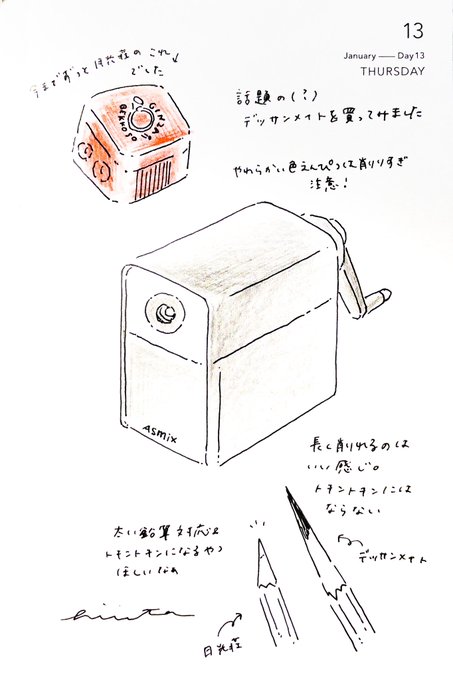 13
January — Day13
THURSDAY
今までずっと月光荘の これ↓
でした
GEKKOSO
GINZA
話題の(?)
デッサンメイトを買ってみました
やわらかい色えんぴつは削りすぎ
注意!
ASMIX
長く削れるのは
いい感じ。
トキントキンには
ならない
デッサンメイト
太い鉛筆対応&
トキントキンになるやつ
ほしいなぁ
月光荘